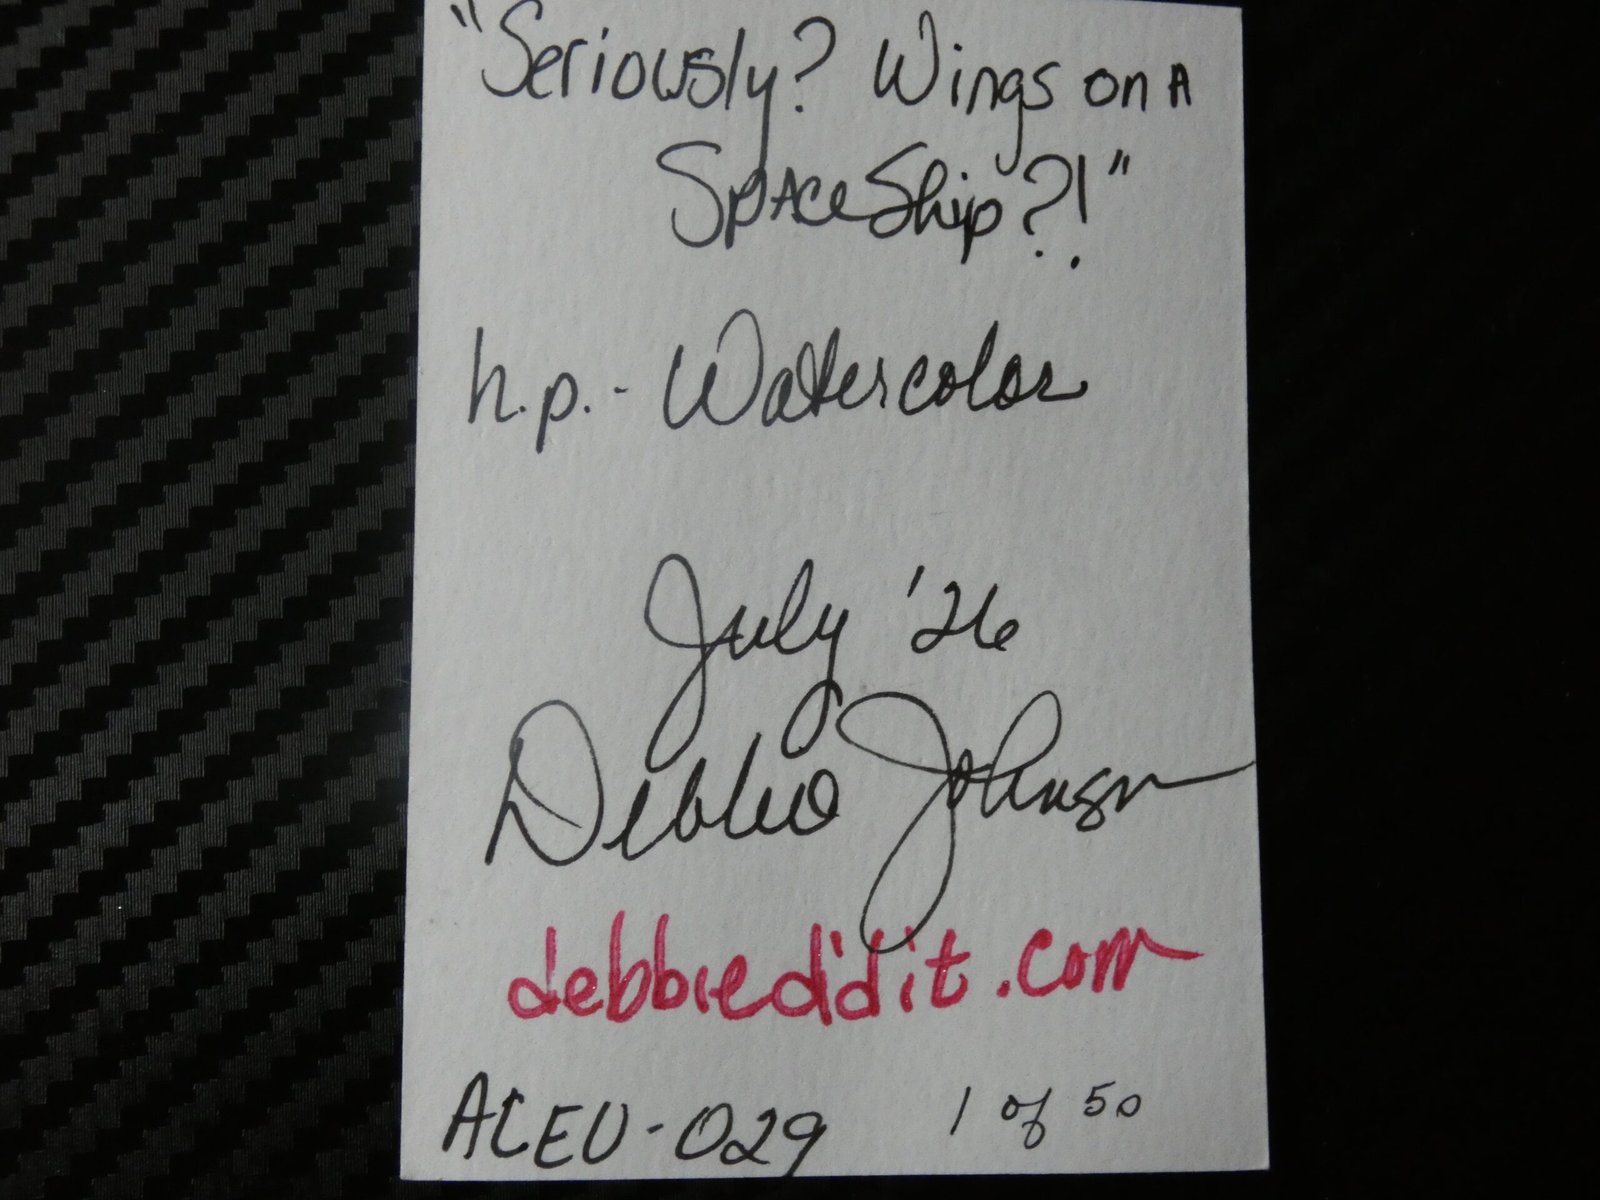 "Seriously? Wings on A
SpaceShip?!"
h.p. - Watercolor
July '26
Debbie Johnson
debbiedidit.com
ACEU-029 1 of 50